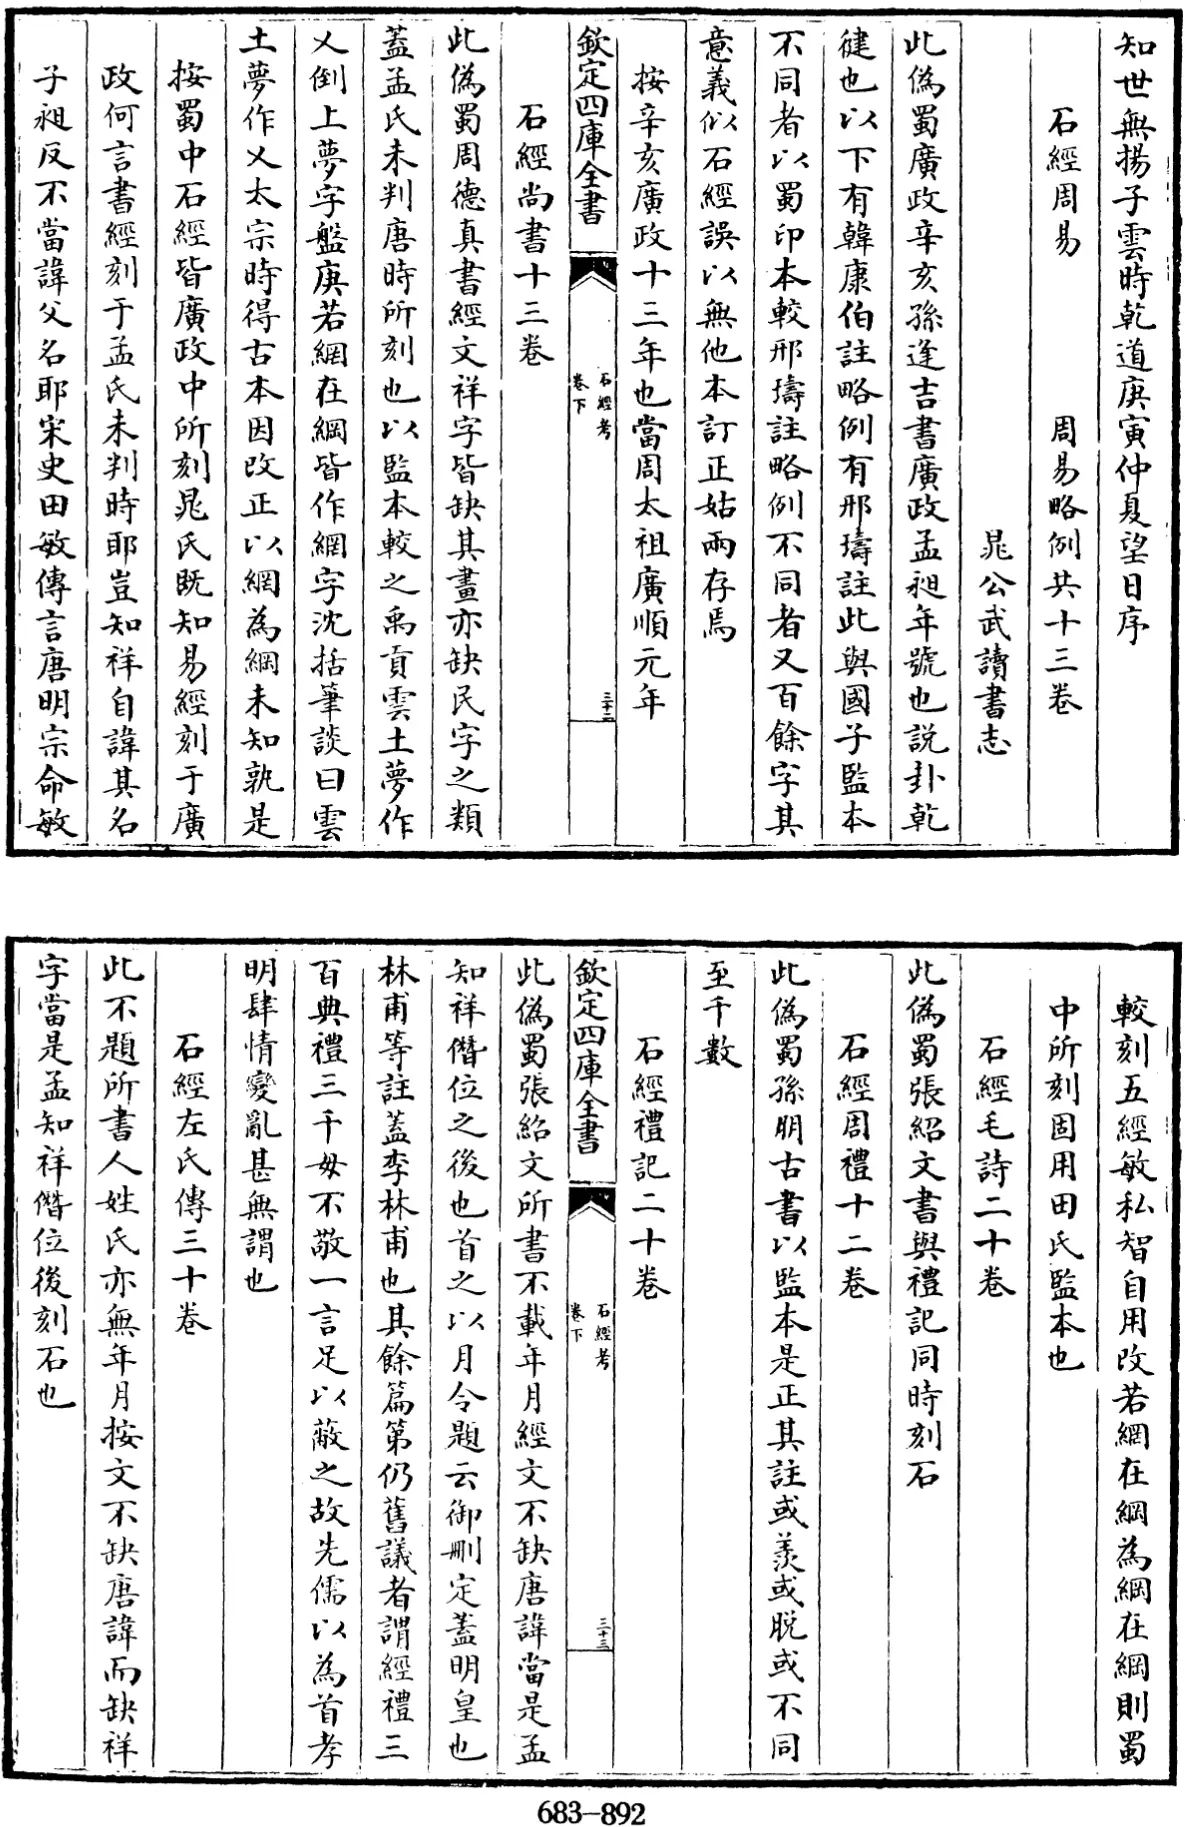 知世無揚子雲時乾道庚寅仲夏望日序
石經周易　周易略例共十三卷
晁公武讀書志
此偽蜀廣政辛亥孫逢吉書廣政孟昶年號也說卦乾
健也以下有韓康伯註略例有邢璹註此與國子監本
不同者以蜀印本較邢璹註略例不同者又百餘字其
意義似石經誤以無他本訂正姑兩存焉
按辛亥廣政十三年也當周太祖廣順元年
欽定四庫全書
石經考
卷下
三十二
石經尚書十三卷
此偽蜀周德真書經文祥字皆缺其畫亦缺民字之類
蓋孟氏未判唐時所刻也以監本較之禹貢雲土夢作
乂倒土夢字盤庚若網在綱皆作網字沈括筆談曰雲
土夢作乂太宗時得古本因改正以網為綱未知孰是
按蜀中石經皆廣政中所刻晁氏既知易經刻于廣
政何言書經刻于孟氏未判時耶豈知祥自諱其名
子昶反不當諱父名耶宋史田敏傳言唐明宗命敏
較刻五經敏私智自用改若網在綱為綱在綱則蜀
中所刻固用田氏監本也
石經毛詩二十卷
此偽蜀張紹文書與禮記同時刻石
石經周禮十二卷
此偽蜀孫朋古書以監本是正其註或羨或脫或不同
至千數
石經禮記二十卷
欽定四庫全書
石經考
卷下
三十三
此偽蜀張紹文所書不載年月經文不缺唐諱當是孟
知祥僭位之後也首之以月令題云御刪定蓋明皇也
林甫等註蓋李林甫也其餘篇第仍舊議者謂經禮三
百典禮三千毋不敬一言足以蔽之故先儒以為首孝
明肆情變亂甚無謂也
石經左氏傳三十卷
此不題所書人姓氏亦無年月按文不缺唐諱而缺祥
字當是孟知祥僭位後刻石也
683-892